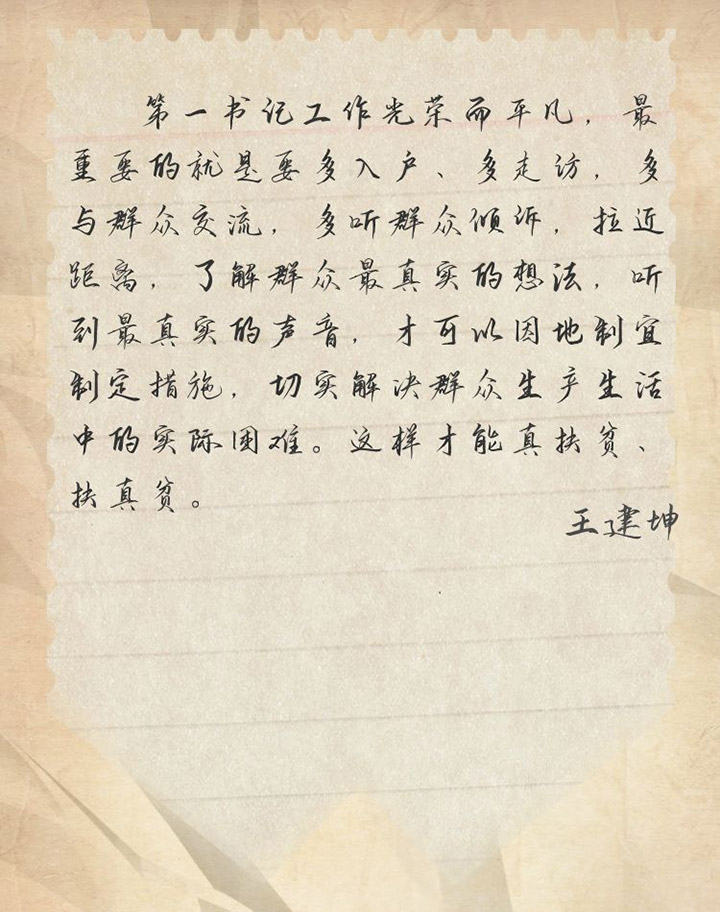 第一书记工作光荣而平凡，最
重要的就是要多入户、多走访，多
与群众交流，多听群众倾诉，拉近
距离，了解群众最真实的想法，听
到最真实的声音，才可以因地制宜
制定措施，切实解决群众生产生活
中的实际困难。这样才能真扶贫、
扶真贫。
王建坤